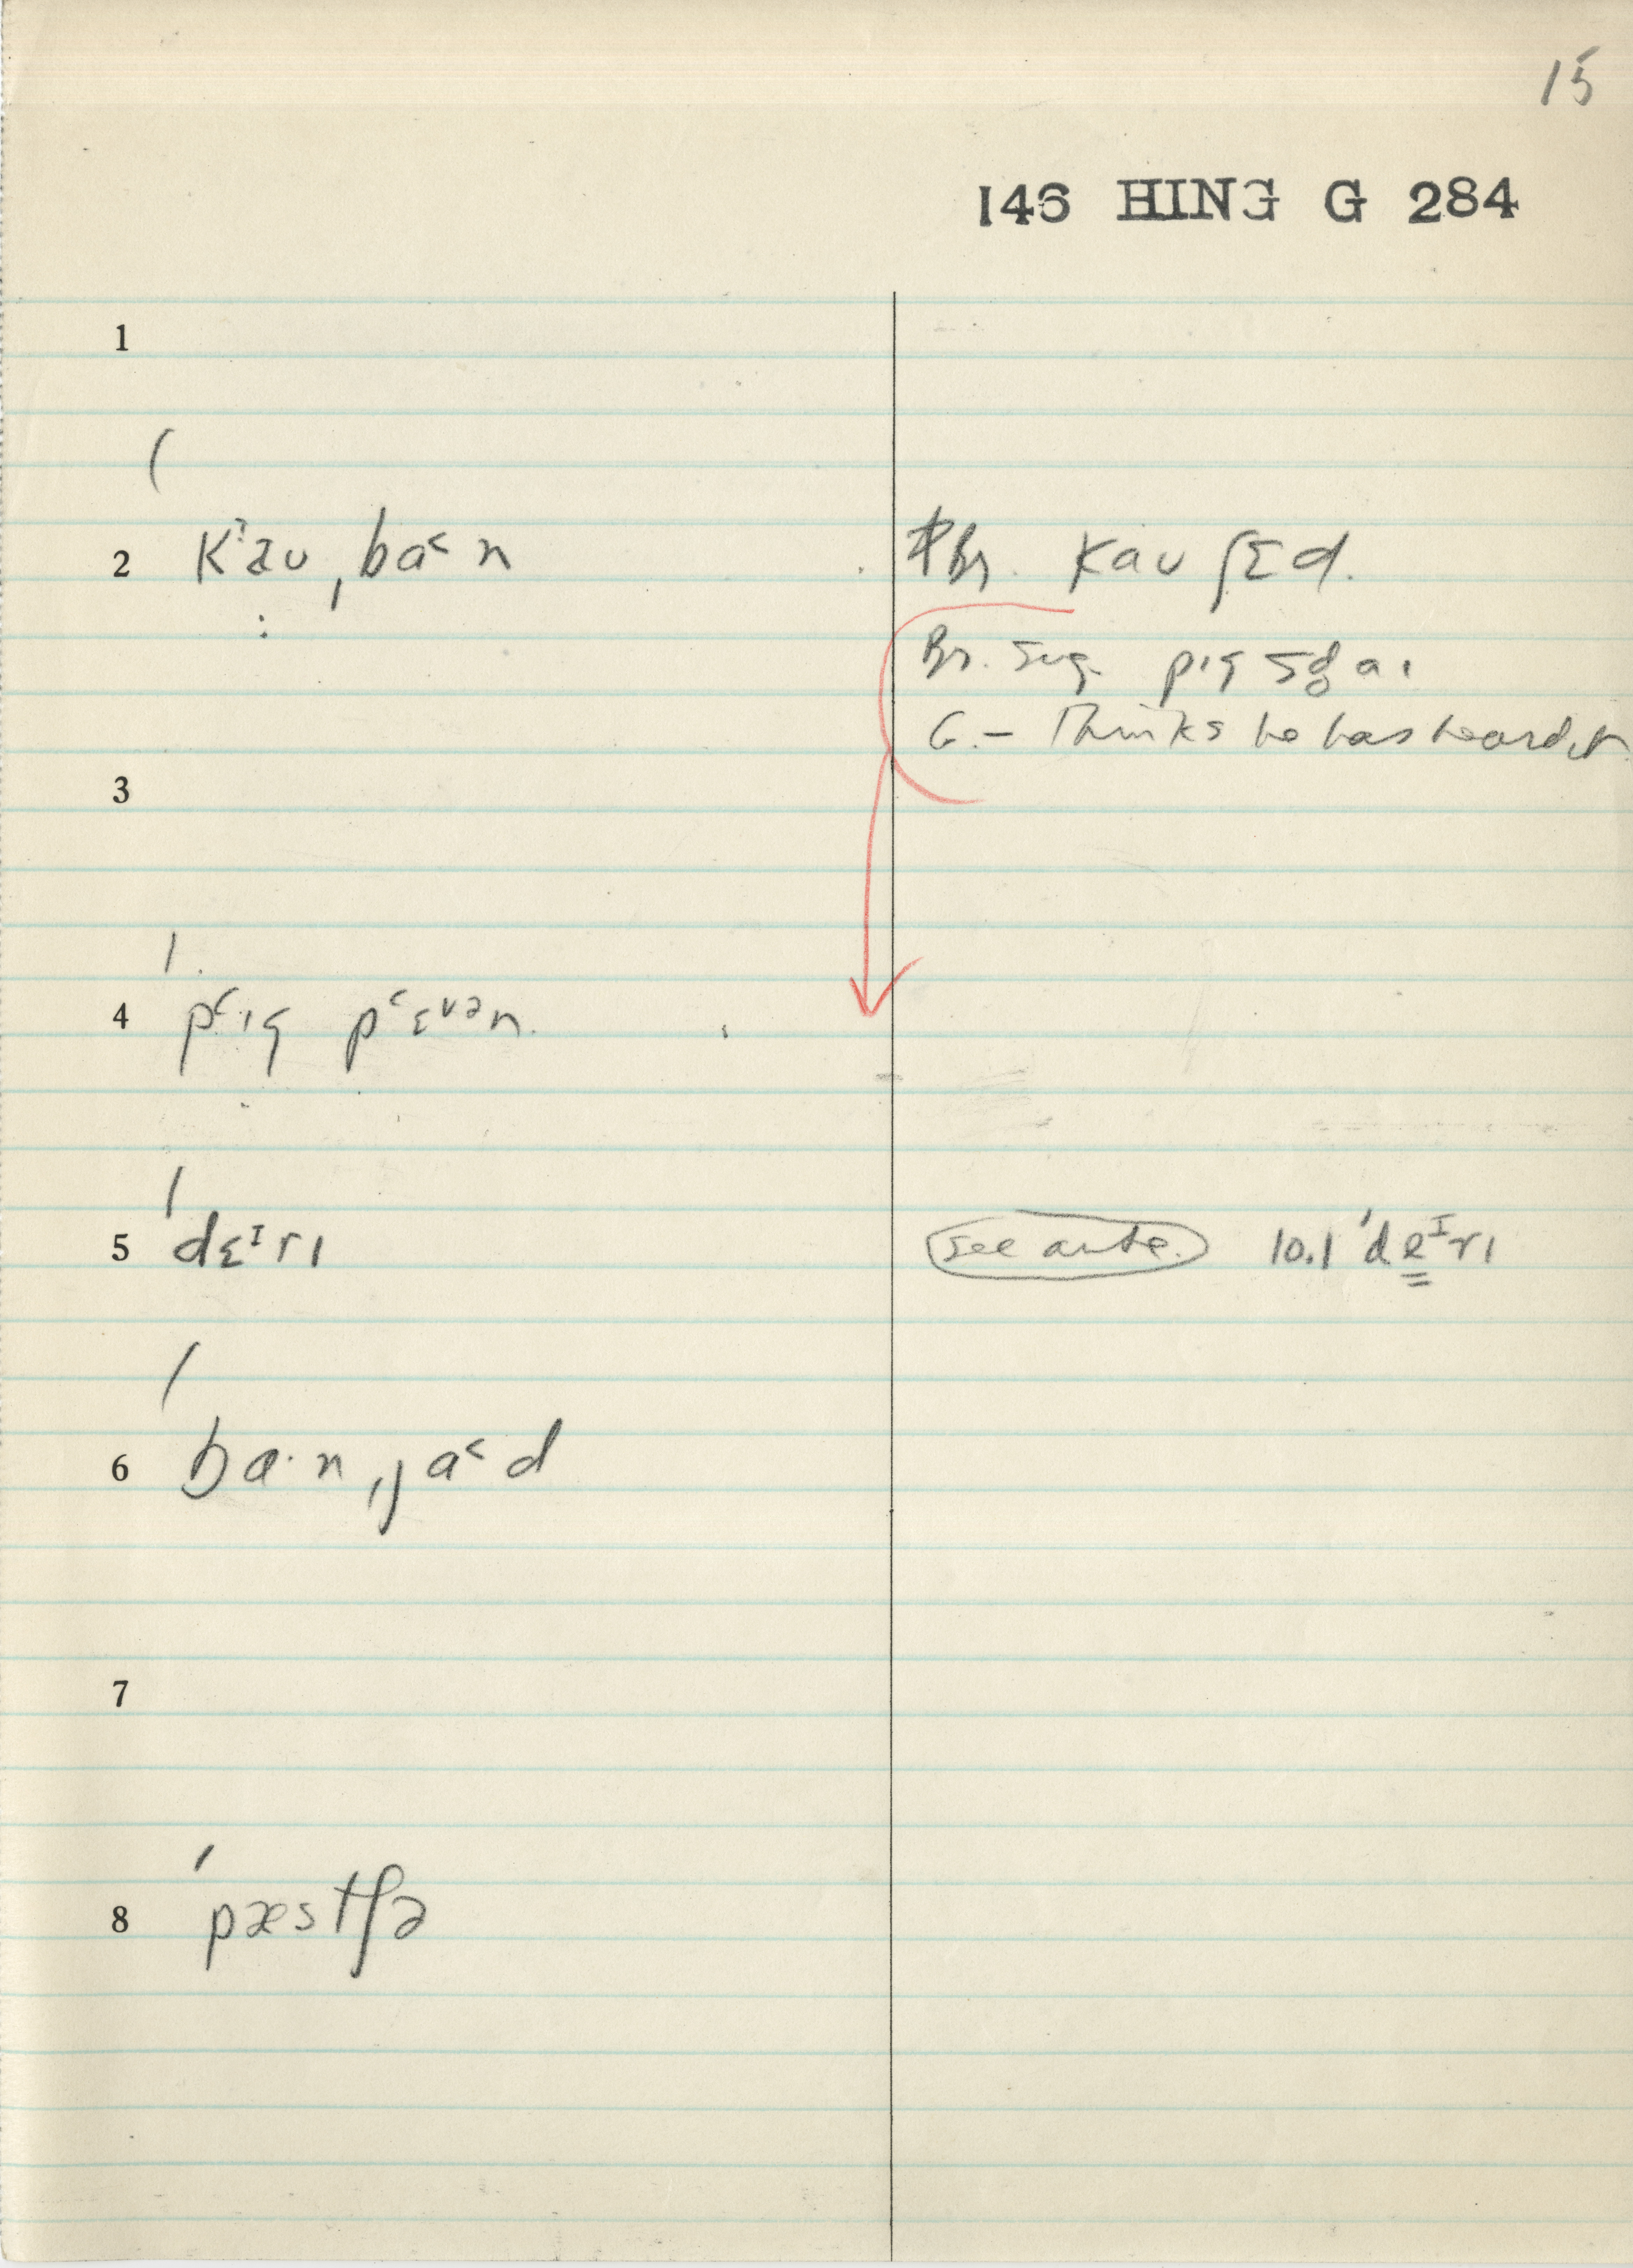 15
146 HING G 284
1
2 ˈkʼau ˌba˂n Br. kau ʃɛd.
Br. sug. pɪg
G. – Thinks he has heard it
3
4 ˈpʿɪg pʿɛᵛᵊn.
5 ˈdɛᴵrɪ see ante. 10.1 ˈdeᴵrɪ
6 ˈba·n ˌja˂d
7
8 ˈpæstʃə